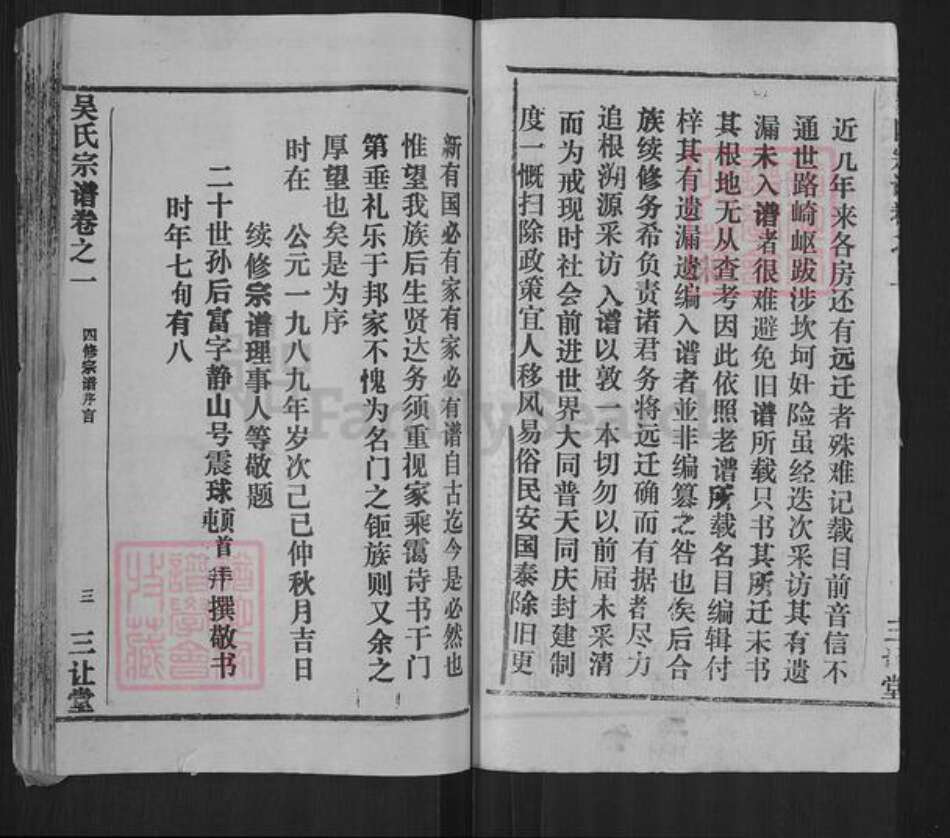 近几年来各房还有远迁者殊难记载目前音信不
通世路崎岖跋涉坎坷奸险虽经迭次采访其有遗
漏未入谱者很难避免旧谱所载只书其所迁未书
其根地无从查考因此依照老谱所载名目编辑付
梓其有遗漏遗编入谱者並非编篡之咎也俟后合
族续修务希负责诸君务将远迁确而有据者尽力
追根溯源采访入谱以敦一本切勿以前届未采清
而为戒现时社会前进世界大同普天同庆封建制
度一慨扫除政策宜人移风易俗民安国泰除旧更
新有国必有家有家必有谱自古迄今是必然也
惟望我族后生贤达务须重视家乘霭诗书于门
第垂礼乐于邦家不愧为名门之钜族则又余之
厚望也矣是为序
时在 公元一九八九年岁次己巳仲秋月吉日
续修宗谱理事人等敬题
二十世孙后富字静山号震球顿首拜撰敬书
时年七旬有八
吴氏宗谱卷之一 四修宗谱序言 三 三让堂
FamilySearch